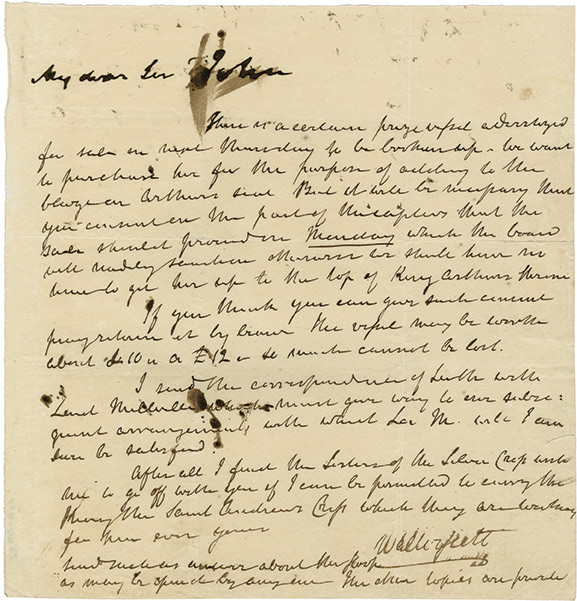 My dear Sir John
There is a certain prize vessel advertized
for sale on next Thursday to be broken up. We want
to purchase her for the purpose of adding to the
blaze on Arthurs seat But it will be necessary that
you consent on the part of the captors that the
sale should proceed on Monday which the board
will readily sanction otherwise we shall have no
time to get her up to the top of King Arthurs throne
If you think you can give such consent
pray return it by bearer The vessel may be worth
about £10 or £12 so much cannot be lost.
I send the correspondence of Leith with
Lord Melville which must give way to our subse=
quent arrangements with which Lor M. will I am
sure be satisfied.
After all I find the Sisters of the Silver Cross wish
me to go off with you if I can be permitted to carry the
King the Saint Andrews Cross which they are
for ever yours
Walter Scott
Send such an answer about the sloop
as may be opend by any one The other topics are private